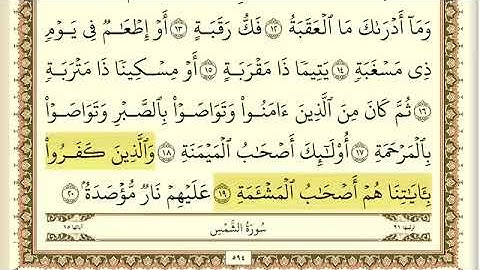 وَمَآ أَدْرَىٰكَ مَا ٱلْعَقَبَةُ ١٢ فَكُّ رَقَبَةٍ ١٣ أَوْ إِطْعَـٰمٌ فِى يَوْمٍ
ذِى مَسْغَبَةٍ ١٤ يَتِيمًا ذَا مَقْرَبَةٍ ١٥ أَوْ مِسْكِينًا ذَا مَتْرَبَةٍ
١٦ ثُمَّ كَانَ مِنَ ٱلَّذِينَ ءَامَنُوا۟ وَتَوَاصَوْا۟ بِٱلصَّبْرِ وَتَوَاصَوْا۟
بِٱلْمَرْحَمَةِ ١٧ أُو۟لَـٰٓئِكَ أَصْحَـٰبُ ٱلْمَيْمَنَةِ ١٨ وَٱلَّذِينَ كَفَرُوا۟
بِـَٔايَـٰتِنَا هُمْ أَصْحَـٰبُ ٱلْمَشْـَٔمَةِ ١٩ عَلَيْهِمْ نَارٌ مُّؤْصَدَةٌۢ ٢٠
ترتيبها ٩١ سُورَةُ الشَّمْسِ آياتها ١٥
٥٩٤